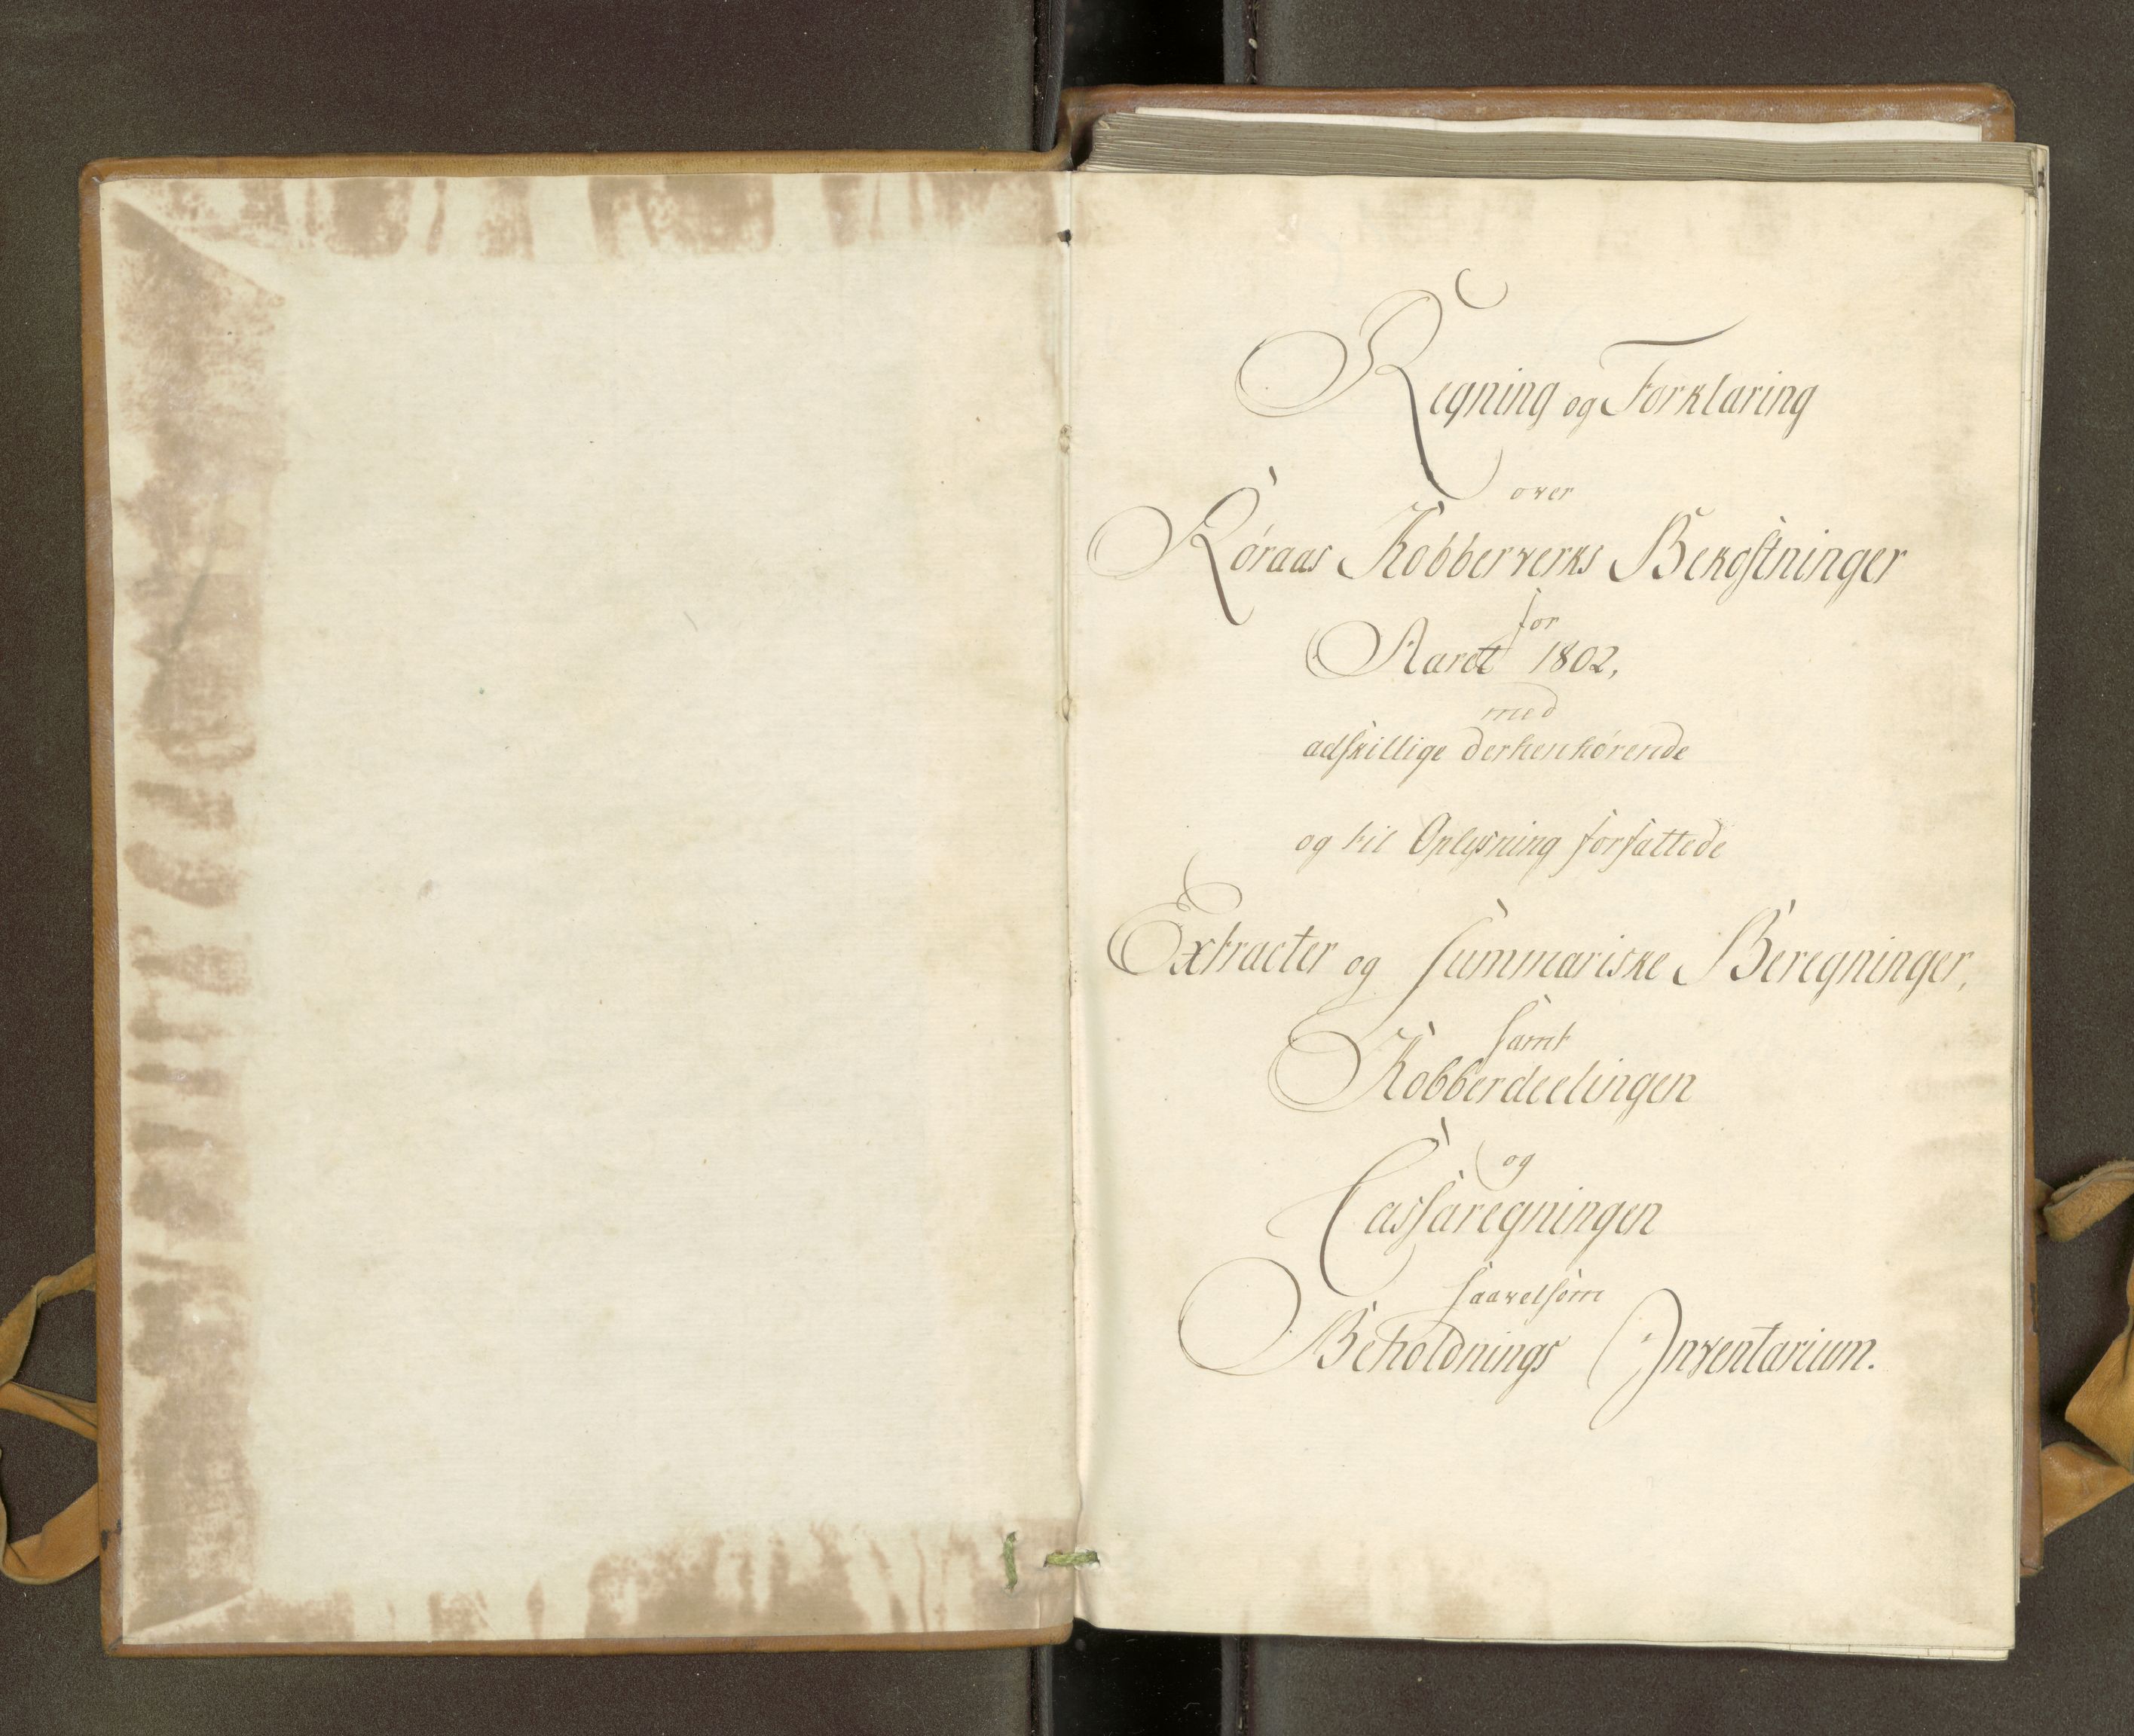 Regning og Forklaring
over
Røraas Kobberverks Bekostninger
for
Aaret 1802,
med
adskillige derhenhørende
og til Oplysning forfattede
Extracter og summariske Beregninger,
samt
Kobberdeelingen
og
Cassaregningen
saavelsom
Beholdnings Inventarium.